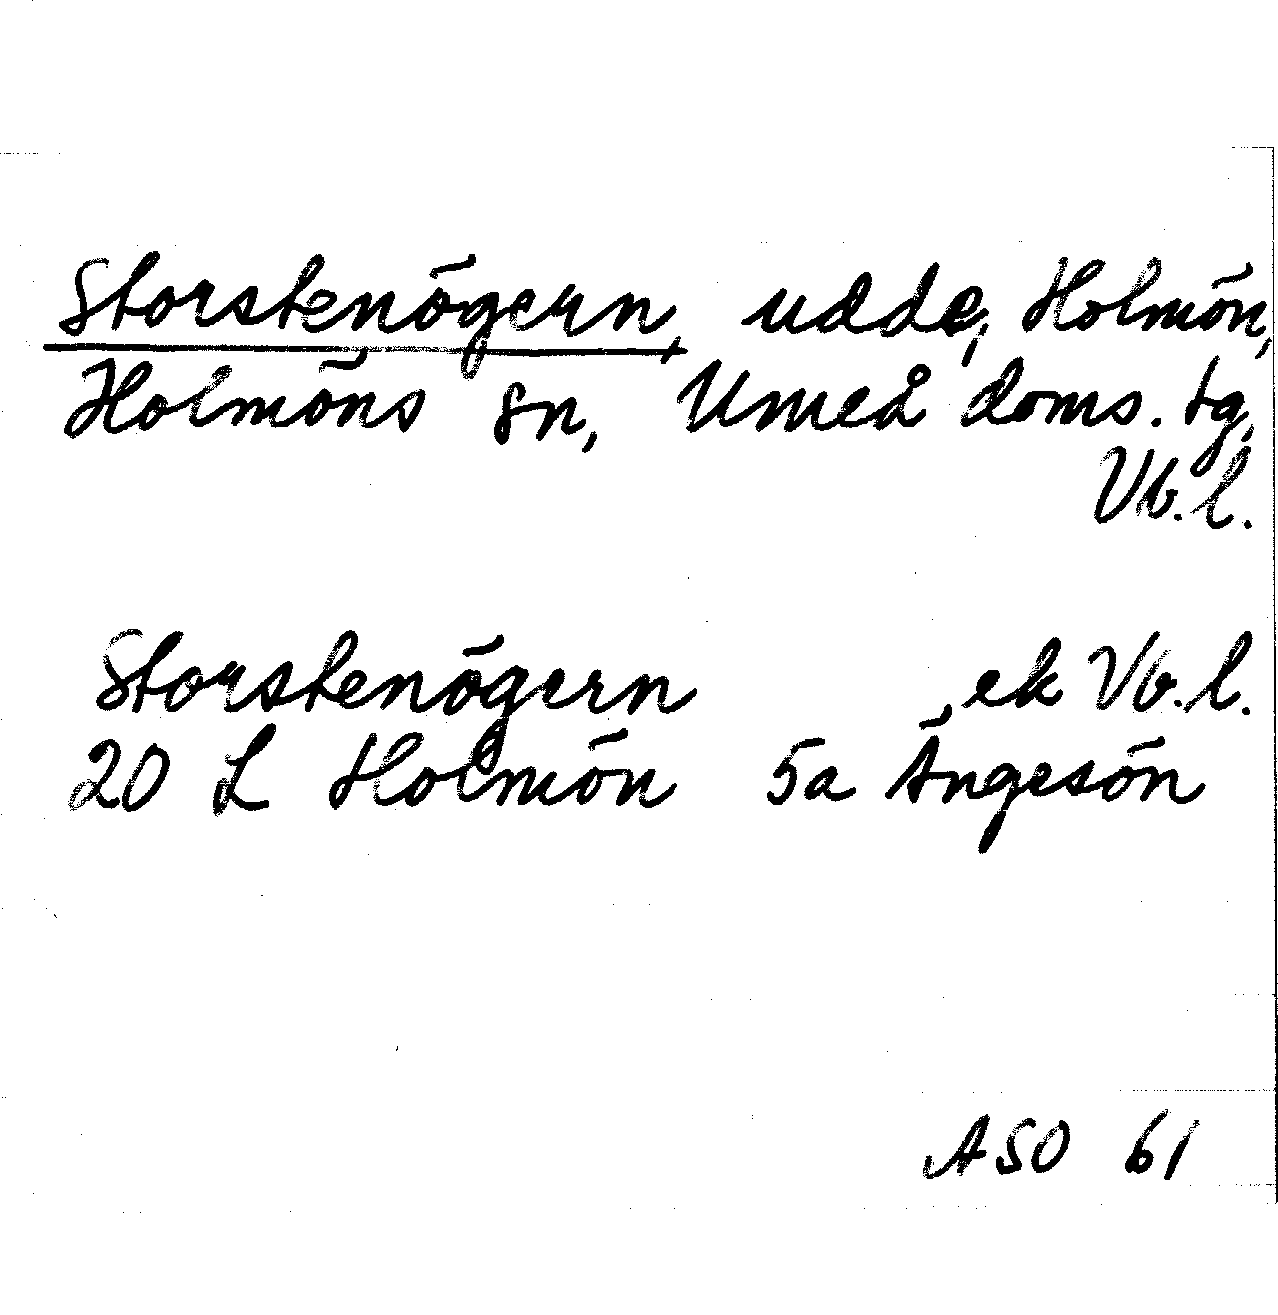 Storstenögern, udde, Holmön,
Holmöns sn, Umeå doms. tg,
Vb.l.
Storstenögern , ek Vb.l.
20 L Holmön 5a Ängesön
ASO 61